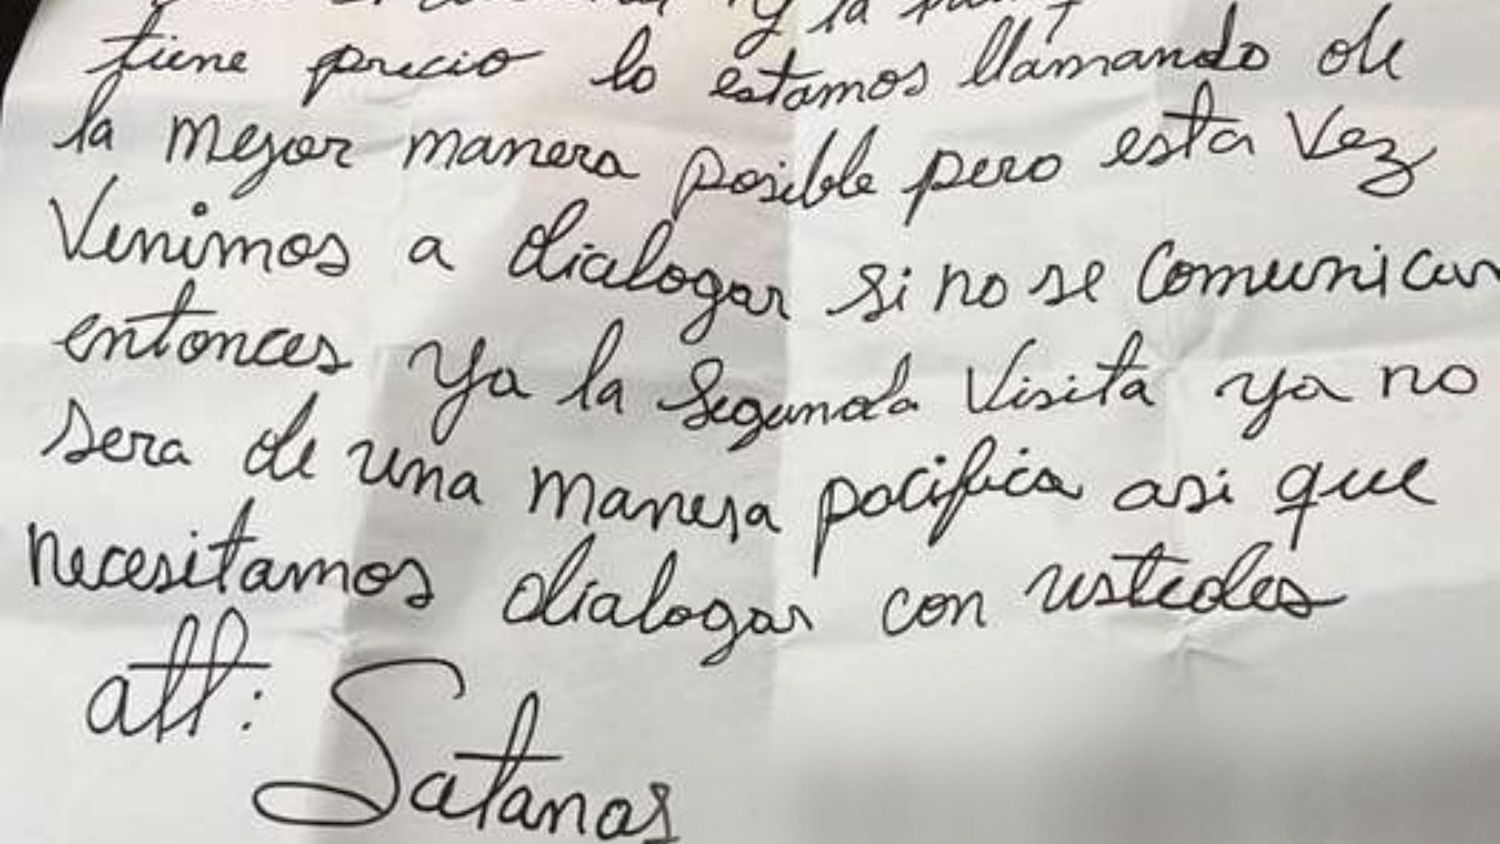 y la
tiene precio lo estamos llamando de
la mejor manera posible pero esta vez
Venimos a dialogar si no se comunican
entonces ya la segunda visita ya no
sera de una manera pacifica asi que
necesitamos dialogar con ustedes
att: Satanas